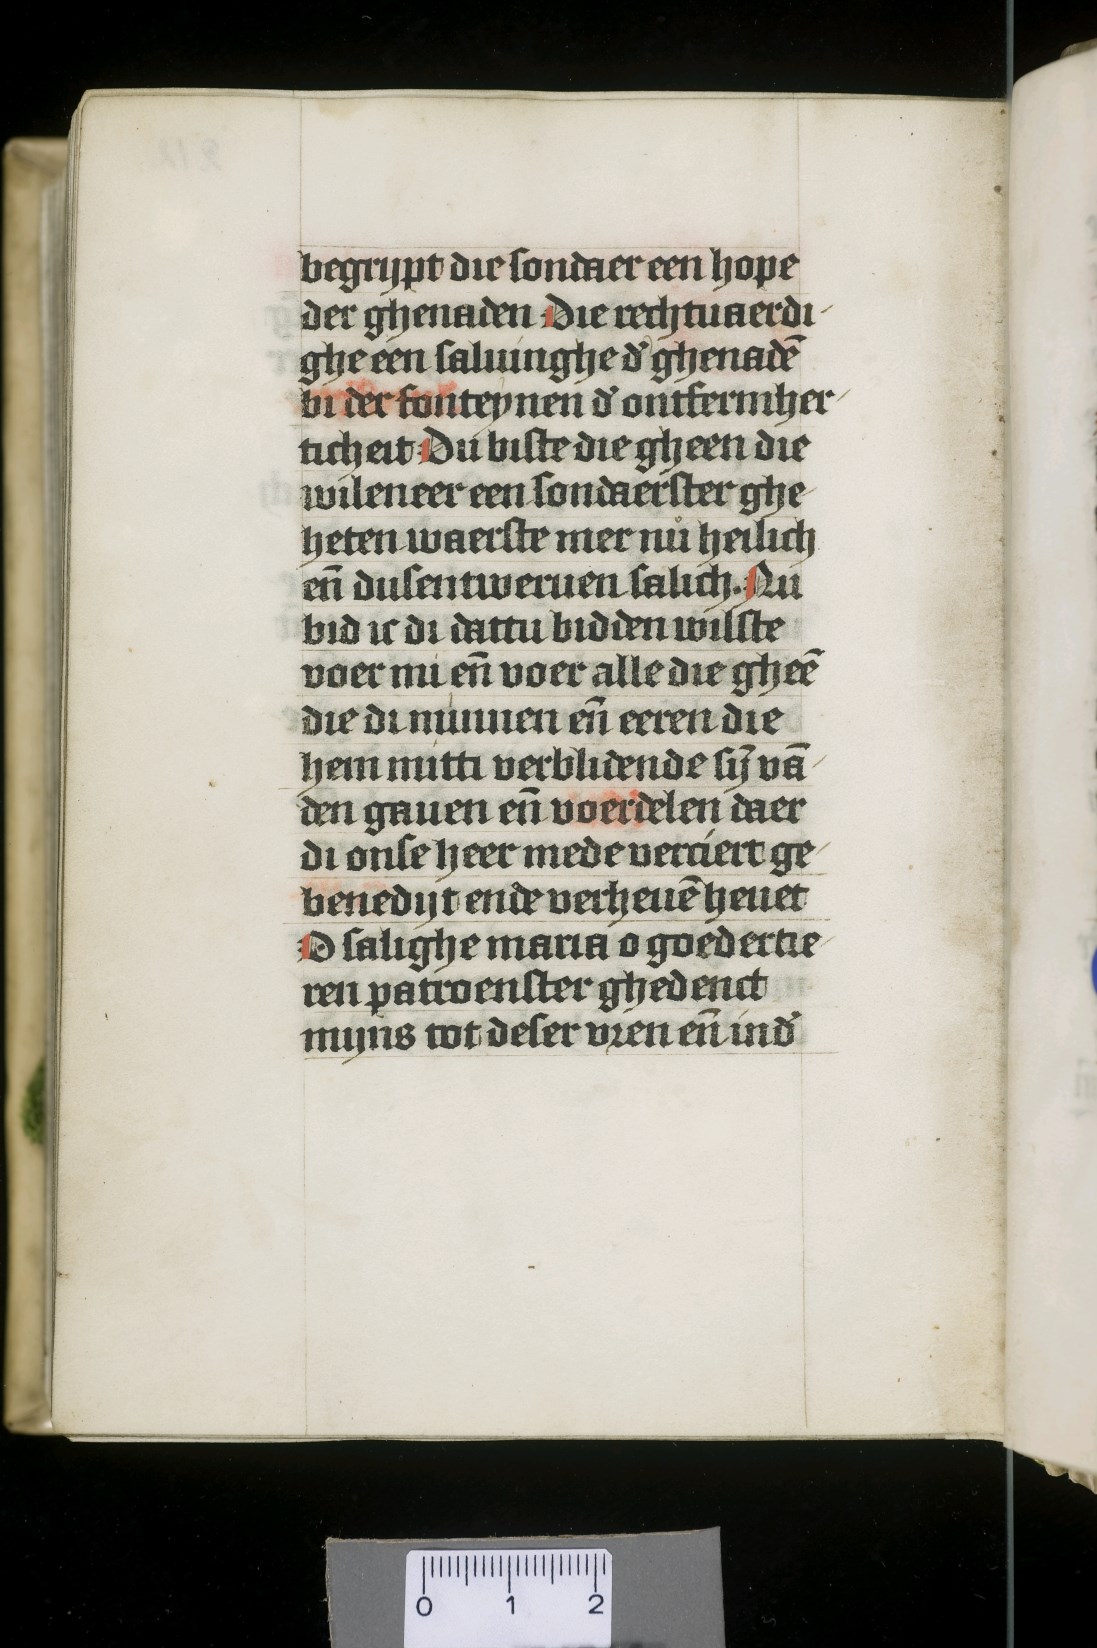 begrijpt die sondaer een hope
der ghenaden Die rechtuaerdi
ghe een saluinghe d' ghenadē
bi der fonteynen d' ontfermher
ticheit Du biste die gheen die
wileneer een sondaerster ghe
heten waerste mer nů heilich
en̄ dusentweruen salich. Nu
bid ic di dattu bidden wilste
voer mi en̄ voer alle die gheē
die di minnen en̄ eeren die
hem mitti verblidende sij̄ vā
den gauen en̄ voerdelen daer
di onse heer mede verciert ge
benedijt ende verheuē heuet
O salighe maria o goedertie
ren patroenster ghedenct
mijns tot deser vren en̄ in d'
0 1 2